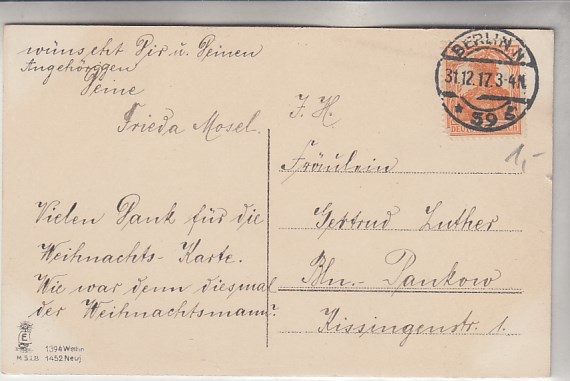 wünscht Dir u. Deinen
Angehörigen
Deine
Frieda Mosel.
Vielen Dank für die
Weihnachts-Karte.
Wie war denn diesmal
der Weihnachtsmann?
BERLIN N
31.12.17. 3-4N
* 39 s
DEUTSCHES REICH
1,-
F. H.
Fräulein
Gertrud Luther
Bln.-Pankow
Kissingenstr. 1.
1394 Weihn
H.S.i.B. 1452 Neuj